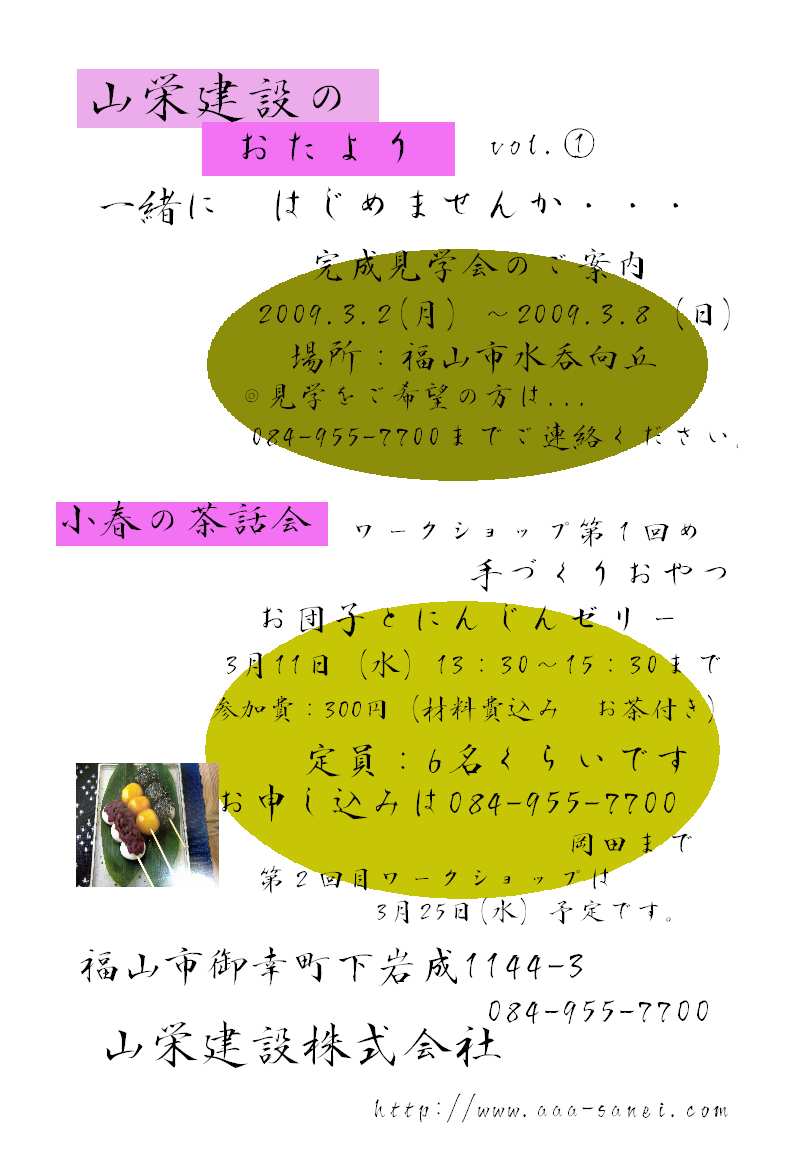 山栄建設の
おたより vol.①
一緒に はじめませんか・・・
完成見学会のご案内
2009.3.2(月) ～2009.3.8 (日)
場所：福山市水呑向丘
◎見学をご希望の方は...
084-955-7700までご連絡ください。
小春の茶話会 ワークショップ第1回め
手づくりおやつ
お団子とにんじんゼリー
3月11日 (水) 13：30～15：30まで
参加費：300円 (材料費込み お茶付き)
定員：6名くらいです
お申し込みは084-955-7700
岡田まで
第2回目ワークショップは
3月25日(水) 予定です。
福山市御幸町下岩成1144-3
084-955-7700
山栄建設株式会社
http://www.aaa-sanei.com